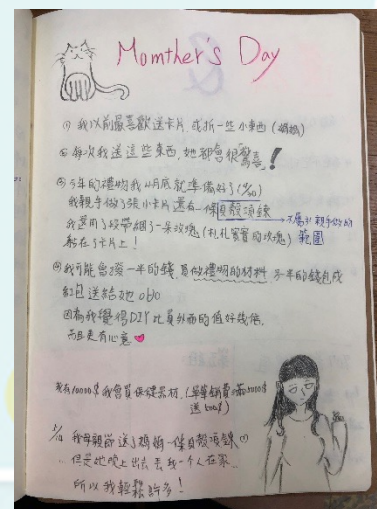 Momther's Day
(1) 我以前最喜歡送卡片, 或折一些小東西 (媽媽)
(2) 每次我送這些東西, 她都會很驚喜!
(3) 今年的禮物我4月底就準備好了
我親手做了張小卡片還有一條貝殼項鍊 → 不屬於親手做的
我還用了緞帶綑了一朵玫瑰 (扎扎實實的玫瑰) 範圍
黏在了卡片上!
(4) 我可能會發一半的錢, 買做禮物的材料, 另一半的錢包成
紅包送給她 obo
因為我覺得DIY比買外面的值好幾倍,
而且更有心意
我有10000$ 我會買保健器材, (單筆消費滿5000$
送500$)
我母親節送了媽媽一條貝殼項鍊
..但是她晚上出去 丟我一個人在家..
所以我輕鬆許多!